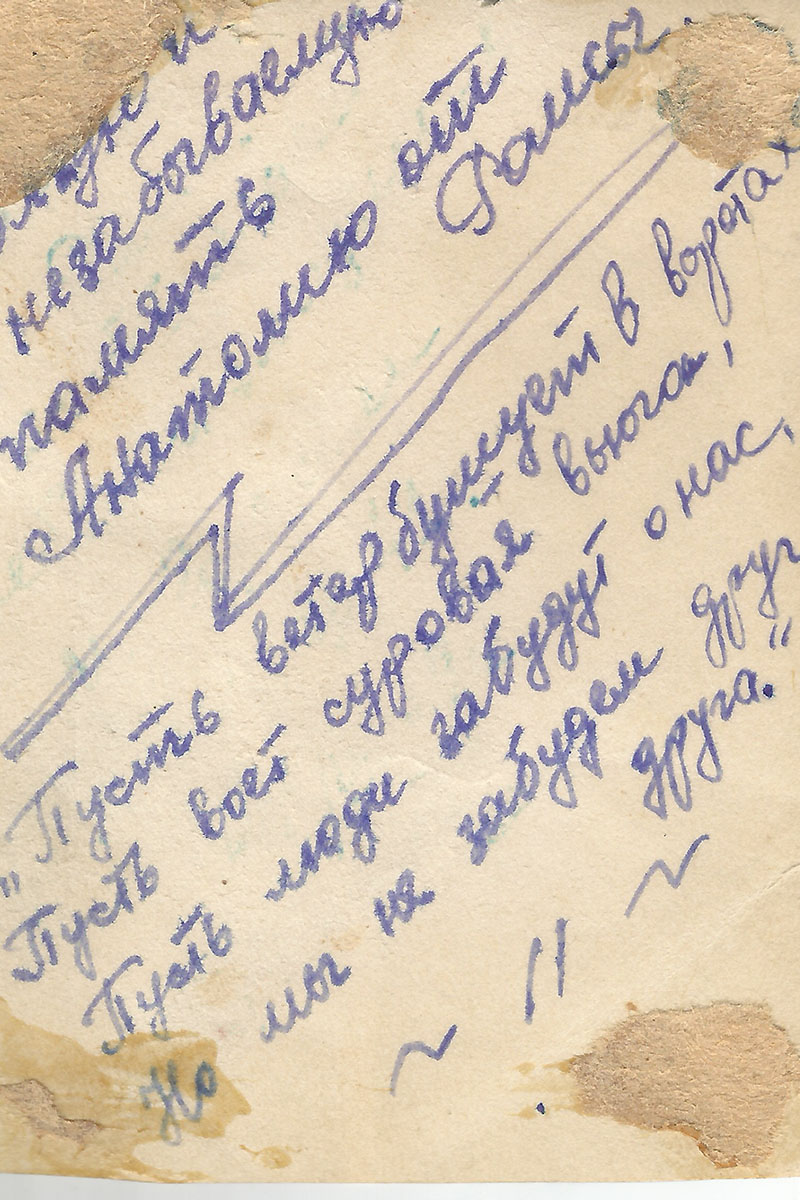 незабываемую
память
Анатолию от
Раисы.
"Пусть ветер бушует в воротах
Пусть воет суровая вьюга,
Пусть люди забудут о нас,
Но мы не забудем друг
друга."
~ || ~